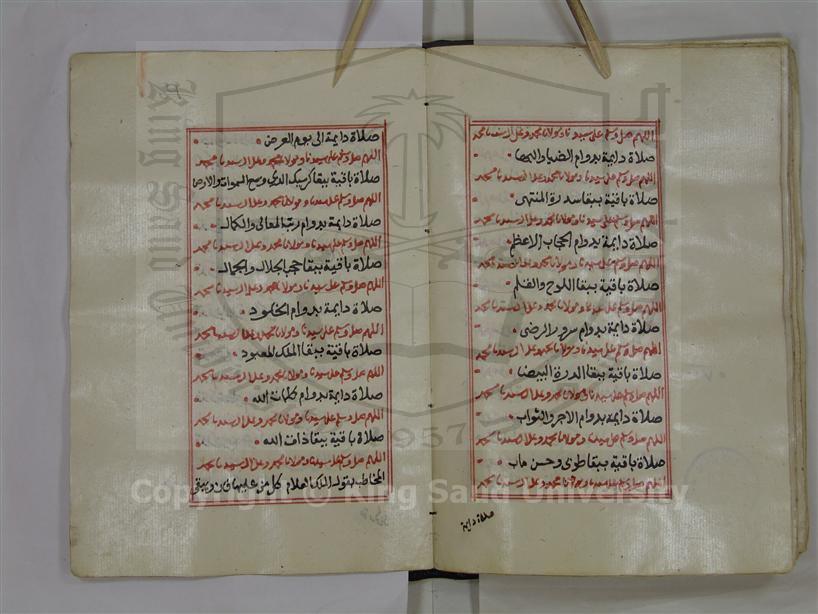 اللهم صل وسلم على سيدنا ومولانا محمد وعلى ال سيدنا محمد
صلاة دايمة بدوام الضيا والبها
اللهم صل وسلم على سيدنا ومولانا محمد وعلى ال سيدنا محمد
صلاة باقية ببقا سدرة المنتهى
اللهم صل وسلم على سيدنا ومولانا محمد وعلى ال سيدنا محمد
صلاة دايمة بدوام الحجاب الاعظم
اللهم صل وسلم على سيدنا ومولانا محمد وعلى ال سيدنا محمد
صلاة باقية ببقا اللوح والقلم
اللهم صل وسلم على سيدنا ومولانا محمد وعلى ال سيدنا محمد
صلاة دايمة بدوام سرور الرضى
اللهم صل وسلم على سيدنا ومولانا محمد وعلى ال سيدنا محمد
صلاة باقية ببقا الدرة البيضا
اللهم صل وسلم على سيدنا ومولانا محمد وعلى ال سيدنا محمد
صلاة دايمة بدوام الاجر والثواب
اللهم صل وسلم على سيدنا ومولانا محمد وعلى ال سيدنا محمد
صلاة باقية ببقا طوى وحسن ماب
اللهم صل وسلم على سيدنا ومولانا محمد وعلى ال سيدنا محمد
صلاة دايمة
صلاة دايمة الى يوم العرض
اللهم صل وسلم على سيدنا ومولانا محمد وعلى ال سيدنا محمد
صلاة باقية ببقا كرسيك الذي وسع السموات والارض
اللهم صل وسلم على سيدنا ومولانا محمد وعلى ال سيدنا محمد
صلاة دايمة بدوام رتب المعالى والكمال
اللهم صل وسلم على سيدنا ومولانا محمد وعلى ال سيدنا محمد
صلاة باقية ببقا حجب الجلال والجمال
اللهم صل وسلم على سيدنا ومولانا محمد وعلى ال سيدنا محمد
صلاة دايمة بدوام الخلود
اللهم صل وسلم على سيدنا ومولانا محمد وعلى ال سيدنا محمد
صلاة باقية ببقا الملك المعبود
اللهم صل وسلم على سيدنا ومولانا محمد وعلى ال سيدنا محمد
صلاة دايمة بدوام كلمات الله
اللهم صل وسلم على سيدنا ومولانا محمد وعلى ال سيدنا محمد
صلاة باقية ببقا ذات الله
اللهم صل وسلم على سيدنا ومولانا محمد وعلى ال سيدنا محمد
المخاطب بقول الملك العلام كل من عليها فان ويبقى
1957
Copyright © King Saud University